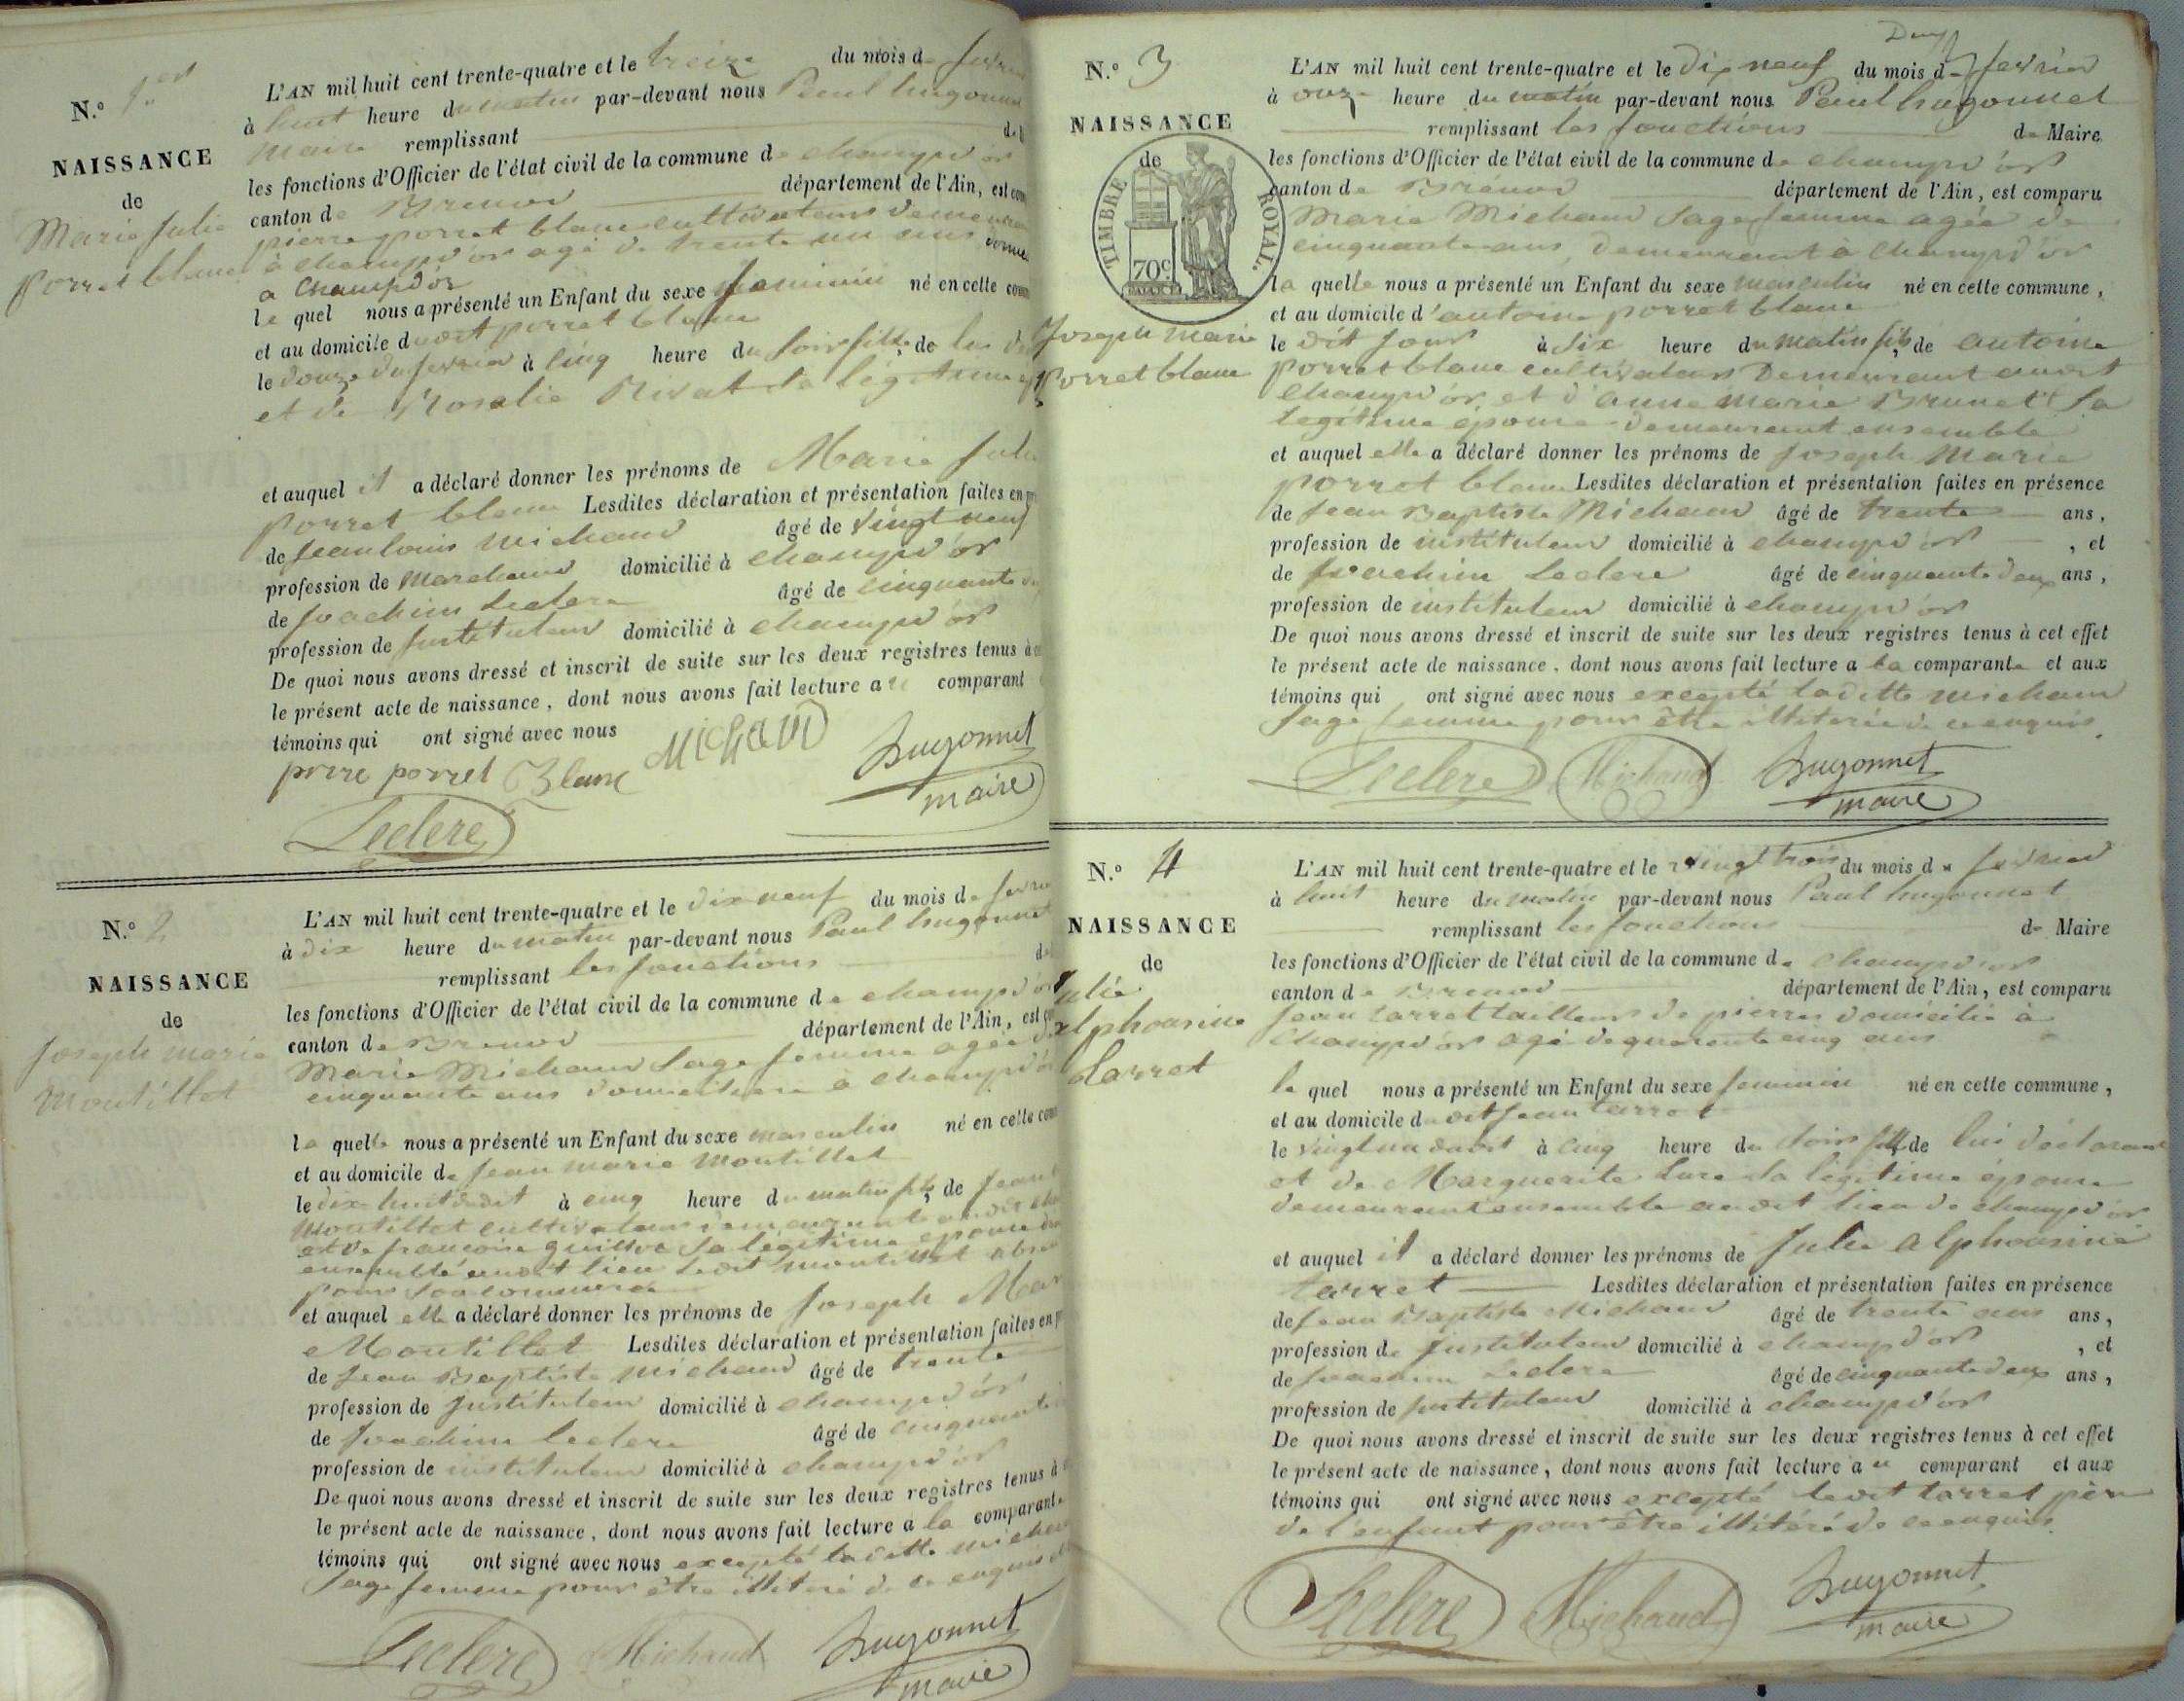 N.º 1er
NAISSANCE
de
Marie Julie
porret blanc
L'AN mil huit cent trente-quatre et le treize du mois de
à huit heure du matin par-devant nous Paul hugonnet
Maire remplissant
les fonctions d'Officier de l'état civil de la commune de champd'or
canton de Brenod département de l'Ain, est
pierre porret blanc cultivateur
à champd'or agé de trente un ans
a champd'or
le quel nous a présenté un Enfant du sexe feminin né en cette
et au domicile dudit porret blanc
le douze du fevrier à cinq heure du soir fille de
et de Rosalie légitime
et auquel il a déclaré donner les prénoms de Marie
porret blanc Lesdites déclaration et présentation faites en
de jean louis michaud âgé de vingt neuf
profession de marchand domicilié à champd'or
de joachim leclerc âgé de cinquante
profession de Instituteur domicilié à champd'or
De quoi nous avons dressé et inscrit de suite sur les deux registres tenus à
le présent acte de naissance, dont nous avons fait lecture a comparant
témoins qui ont signé avec nous
prire porret Blanc Michaud hugonnet
maire
Leclerc
N.º 2
NAISSANCE
de
Joseph marie
Moutillet
L'AN mil huit cent trente-quatre et le dix neuf du mois de
à dix heure du matin par-devant nous Paul hugonnet
remplissant les fonctions
les fonctions d'Officier de l'état civil de la commune de champd'or
canton de Brenod département de l'Ain, est
Marie Michaud Sage femme agée de
cinquante ans à champd'or
la quelle nous a présenté un Enfant du sexe masculin né en cette
et au domicile de jean marie Moutillet
le dix huit dudit à cinq heure du matin fils de
Moutillet cultivateur
et de francoise sa légitime épouse
ensemble audit lieu ledit moutillet
pour son commerce
et auquel elle a déclaré donner les prénoms de Joseph
Moutillet Lesdites déclaration et présentation faites en
de jean Baptiste michaud âgé de trente
profession de Instituteur domicilié à champd'or
de Joachim leclerc âgé de
profession de instituteur domicilié à champd'or
De quoi nous avons dressé et inscrit de suite sur les deux registres tenus à
le présent acte de naissance, dont nous avons fait lecture a la comparante
témoins qui ont signé avec nous excepté laditte
Sage femme pour être illiteré de ce enquis
Leclerc Michaud hugonnet
maire
N.º 3
NAISSANCE
de
TIMBRE ROYAL.
70c
Joseph Marie
porret blanc
L'AN mil huit cent trente-quatre et le dix neuf du mois de fevrier
à onze heure du matin par-devant nous Paul hugonnet
remplissant les fonctions de Maire
les fonctions d'Officier de l'état civil de la commune de champd'or
canton de Brénod département de l'Ain, est comparu
Marie Michaud Sage femme agée de
cinquante ans, demeurant à champd'or
la quelle nous a présenté un Enfant du sexe masculin né en cette commune,
et au domicile d'antoine porret blanc
le dit jour à six heure du matin fils de antoine
porret blanc cultivateur Demeurant audit
champd'or, et d'anne marie Brunet Sa
legitime épouse demeurant ensemble
et auquel elle a déclaré donner les prénoms de joseph Marie
porret blanc Lesdites déclaration et présentation faites en présence
de Jean Baptiste Michaud âgé de trente ans,
profession de instituteur domicilié à champd'or, et
de Joachim Leclerc âgé de cinquante deux ans,
profession de instituteur domicilié à champd'or
De quoi nous avons dressé et inscrit de suite sur les deux registres tenus à cet effet
le présent acte de naissance, dont nous avons fait lecture a la comparante et aux
témoins qui ont signé avec nous excepté laditte michaud
Sage femme pour être illiterée de ce enquis.
Leclerc Michaud hugonnet
maire
N.º 4
NAISSANCE
de
Julie
alphonsine
Larret
L'AN mil huit cent trente-quatre et le vingt trois du mois de fevrier
à huit heure du matin par-devant nous Paul hugonnet
remplissant les fonctions de Maire
les fonctions d'Officier de l'état civil de la commune de champd'or
canton de Brenod département de l'Ain, est comparu
jean Larret tailleur de pierres domicilié à
champd'or agé de quarante cinq ans
le quel nous a présenté un Enfant du sexe feminin né en cette commune,
et au domicile dudit jean Larret
le vingt un dudit à cinq heure du soir fille de lui déclarant
et de Marguerite sa légitime épouse
demeurant ensemble audit lieu de champd'or
et auquel il a déclaré donner les prénoms de Julie alphonsine
Larret Lesdites déclaration et présentation faites en présence
de jean Baptiste Michaud âgé de trente ans ans,
profession de Instituteur domicilié à champd'or, et
de Joachim Leclerc âgé de cinquante deux ans,
profession de Instituteur domicilié à champd'or
De quoi nous avons dressé et inscrit de suite sur les deux registres tenus à cet effet
le présent acte de naissance, dont nous avons fait lecture a u comparant et aux
témoins qui ont signé avec nous excepté ledit Larret père
de l'enfant pour être illitéré de ce enquis.
Leclerc Michaud hugonnet
maire